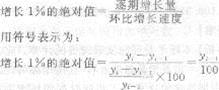 增长1%的绝对值=逐期增长量/环比增长速度
用符号表示为:
增长1%的绝对值=(yᵢ-yᵢ₋₁)/((yᵢ-yᵢ₋₁)/yᵢ₋₁×100)=yᵢ₋₁/100